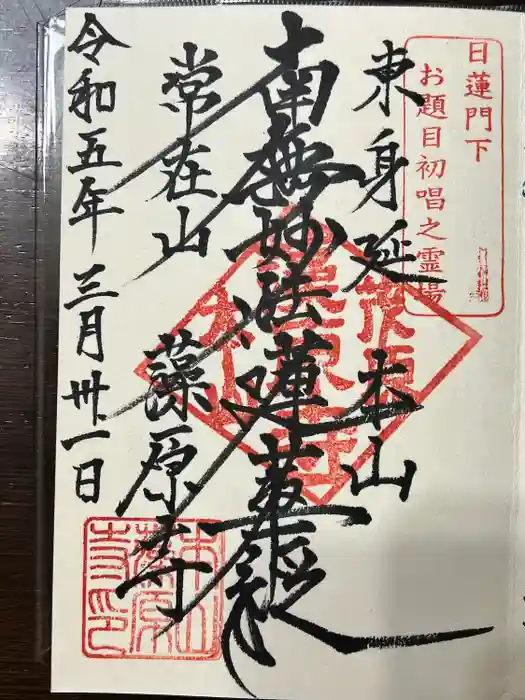 日蓮門下
お題目初唱之霊場
東身延 本山
南無妙法蓮華経
常在山 藻原寺
令和五年三月卅一日